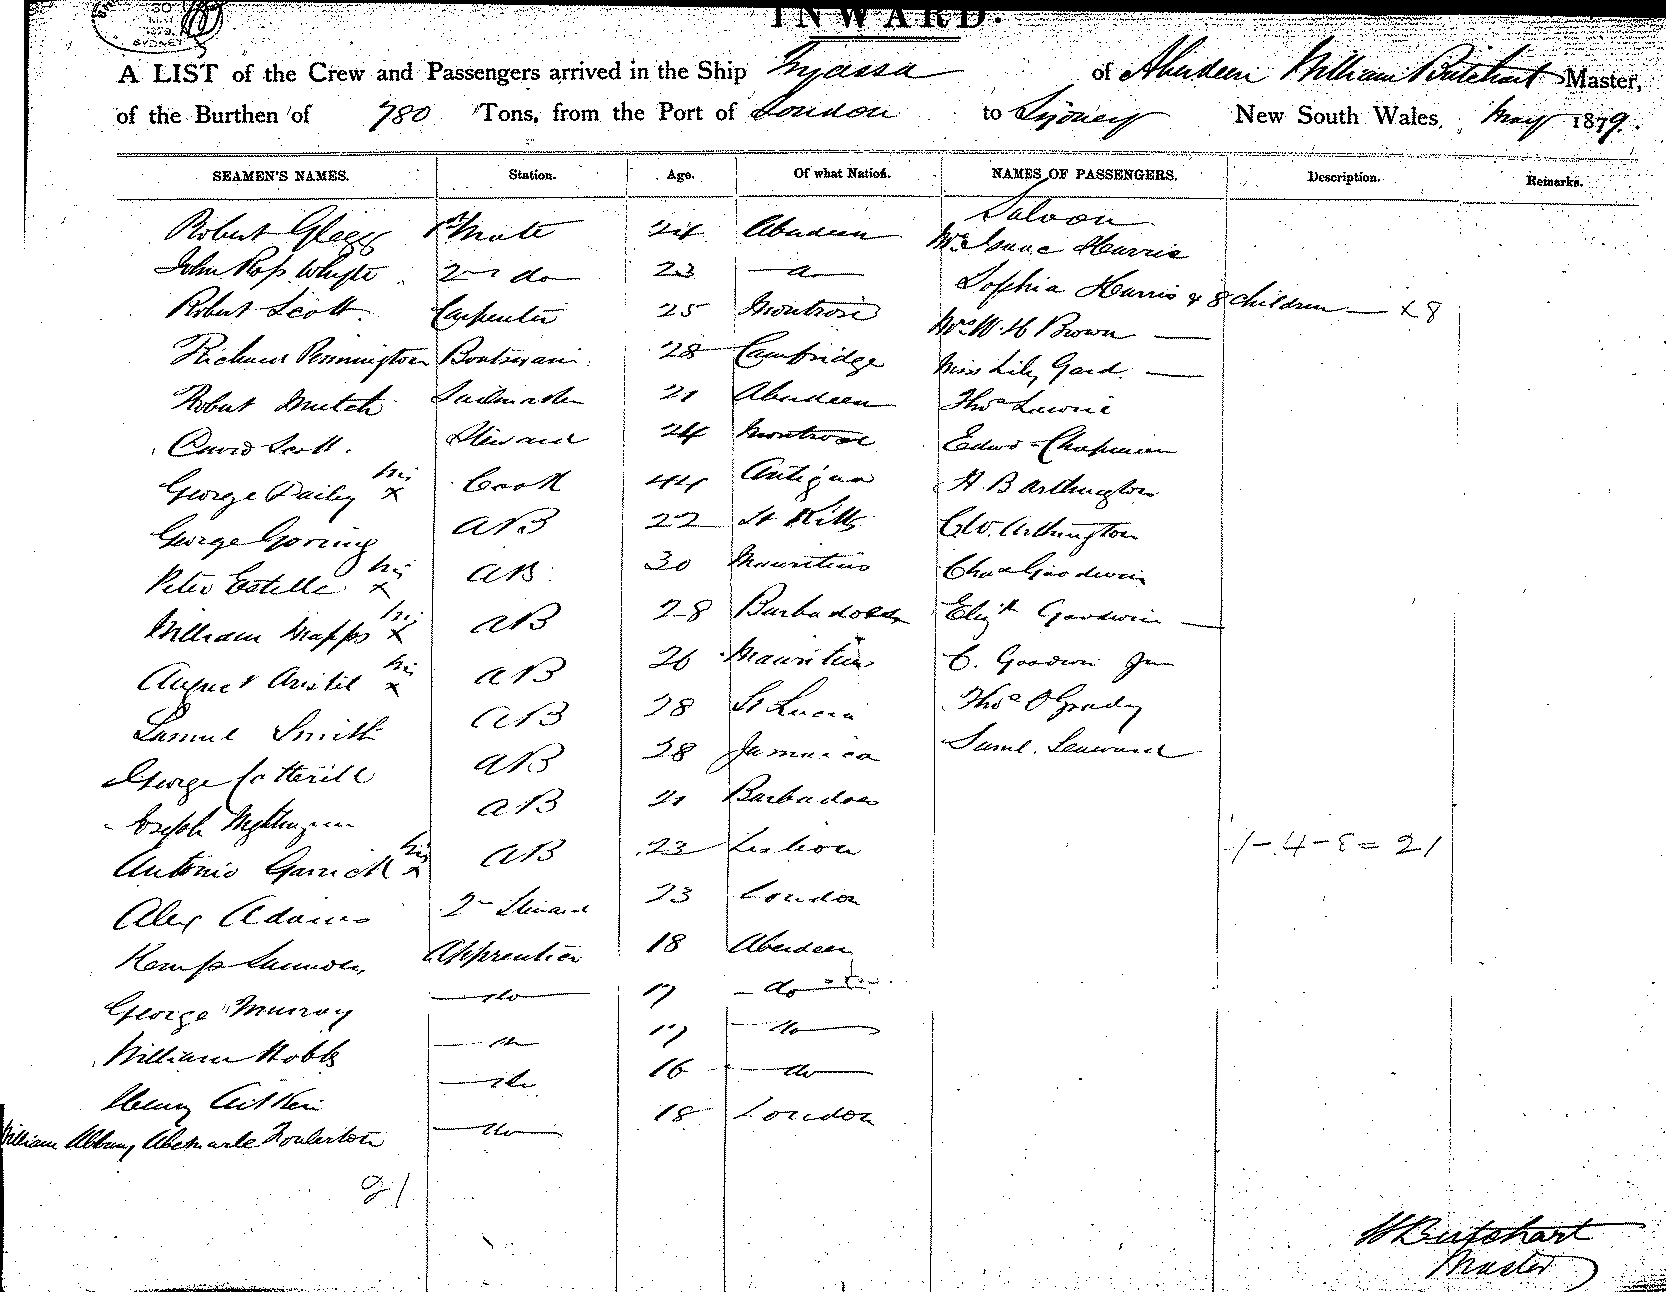 SYDNEY
INWARD.
A LIST of the Crew and Passengers arrived in the Ship Nyassa of Aberdeen William Butchart Master,
of the Burthen of 780 Tons, from the Port of London to Sydney New South Wales, May 1879.
SEAMEN'S NAMES. Station. Age. Of what Nation. NAMES OF PASSENGERS. Description. Remarks.
Saloon
Robert Glegg 1st Mate 24 Aberdeen Mr Isaac Harris
John Ross Whyte 2nd do 23 do Sophia Harris & 8 children — x 8
Robert Scott Carpenter 25 Montrose Mrs W. H Brown —
Richard Pennington Boatswain 28 Cambridge Miss Lily Gard. —
Robert Mutch Sailmaker 21 Aberdeen Thos Lawrie
David Scott. Steward 24 Montrose Edwd Chapman
George Dailey his x Cook 44 Antigua H. B Arthington
George Goring AB 22 St Kitts C W. Arthington
Peter Estelle his x AB 30 Mauritius Chas Goodwin
William Mapps his x AB 28 Barbadoes Elizth Goodwin —
August Aristil his x AB 26 Mauritius C. Goodwin Jun
Samuel Smith AB 28 St Lucia Thos O'Grady
George Cotterill AB 28 Jamaica Saml. Seaward
Joseph AB 21 Barbadoes
Antonio Garrick his x AB 23 Lisbon 1-4-8=21
Alex Adams 2nd Steward 23 London
Kemp Apprentice 18 Aberdeen
George Murray — do — 17 — do —
William Hobbs — do 17 — do —
Henry Aitken — do 16 — do —
William Albany Abemarle Fowlerton — do — 18 London
21
W Butchart
Master